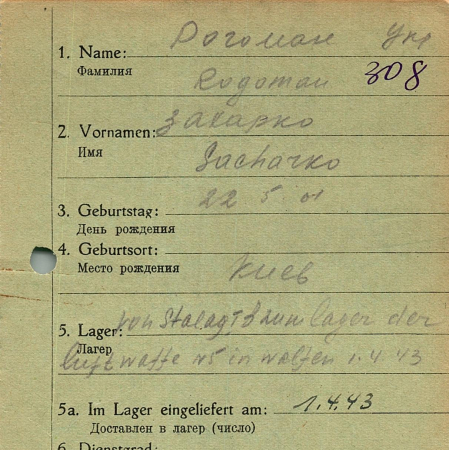 1. Name: Рогоман Укр
Фамилия
Rogoman 308
2. Vornamen: Захарко
Имя
Sacharko
22 5 01
3. Geburtstag:
День рождения
4. Geburtsort:
Место рождения Киев
5. Lager: von Stalag zum lager der
Лагер
luftwaffe N5 in Wolfen 1.4.43
5a. Im Lager eingeliefert am: 1.4.43
Доставлен в лагер (число)
6. Dienstgrad: